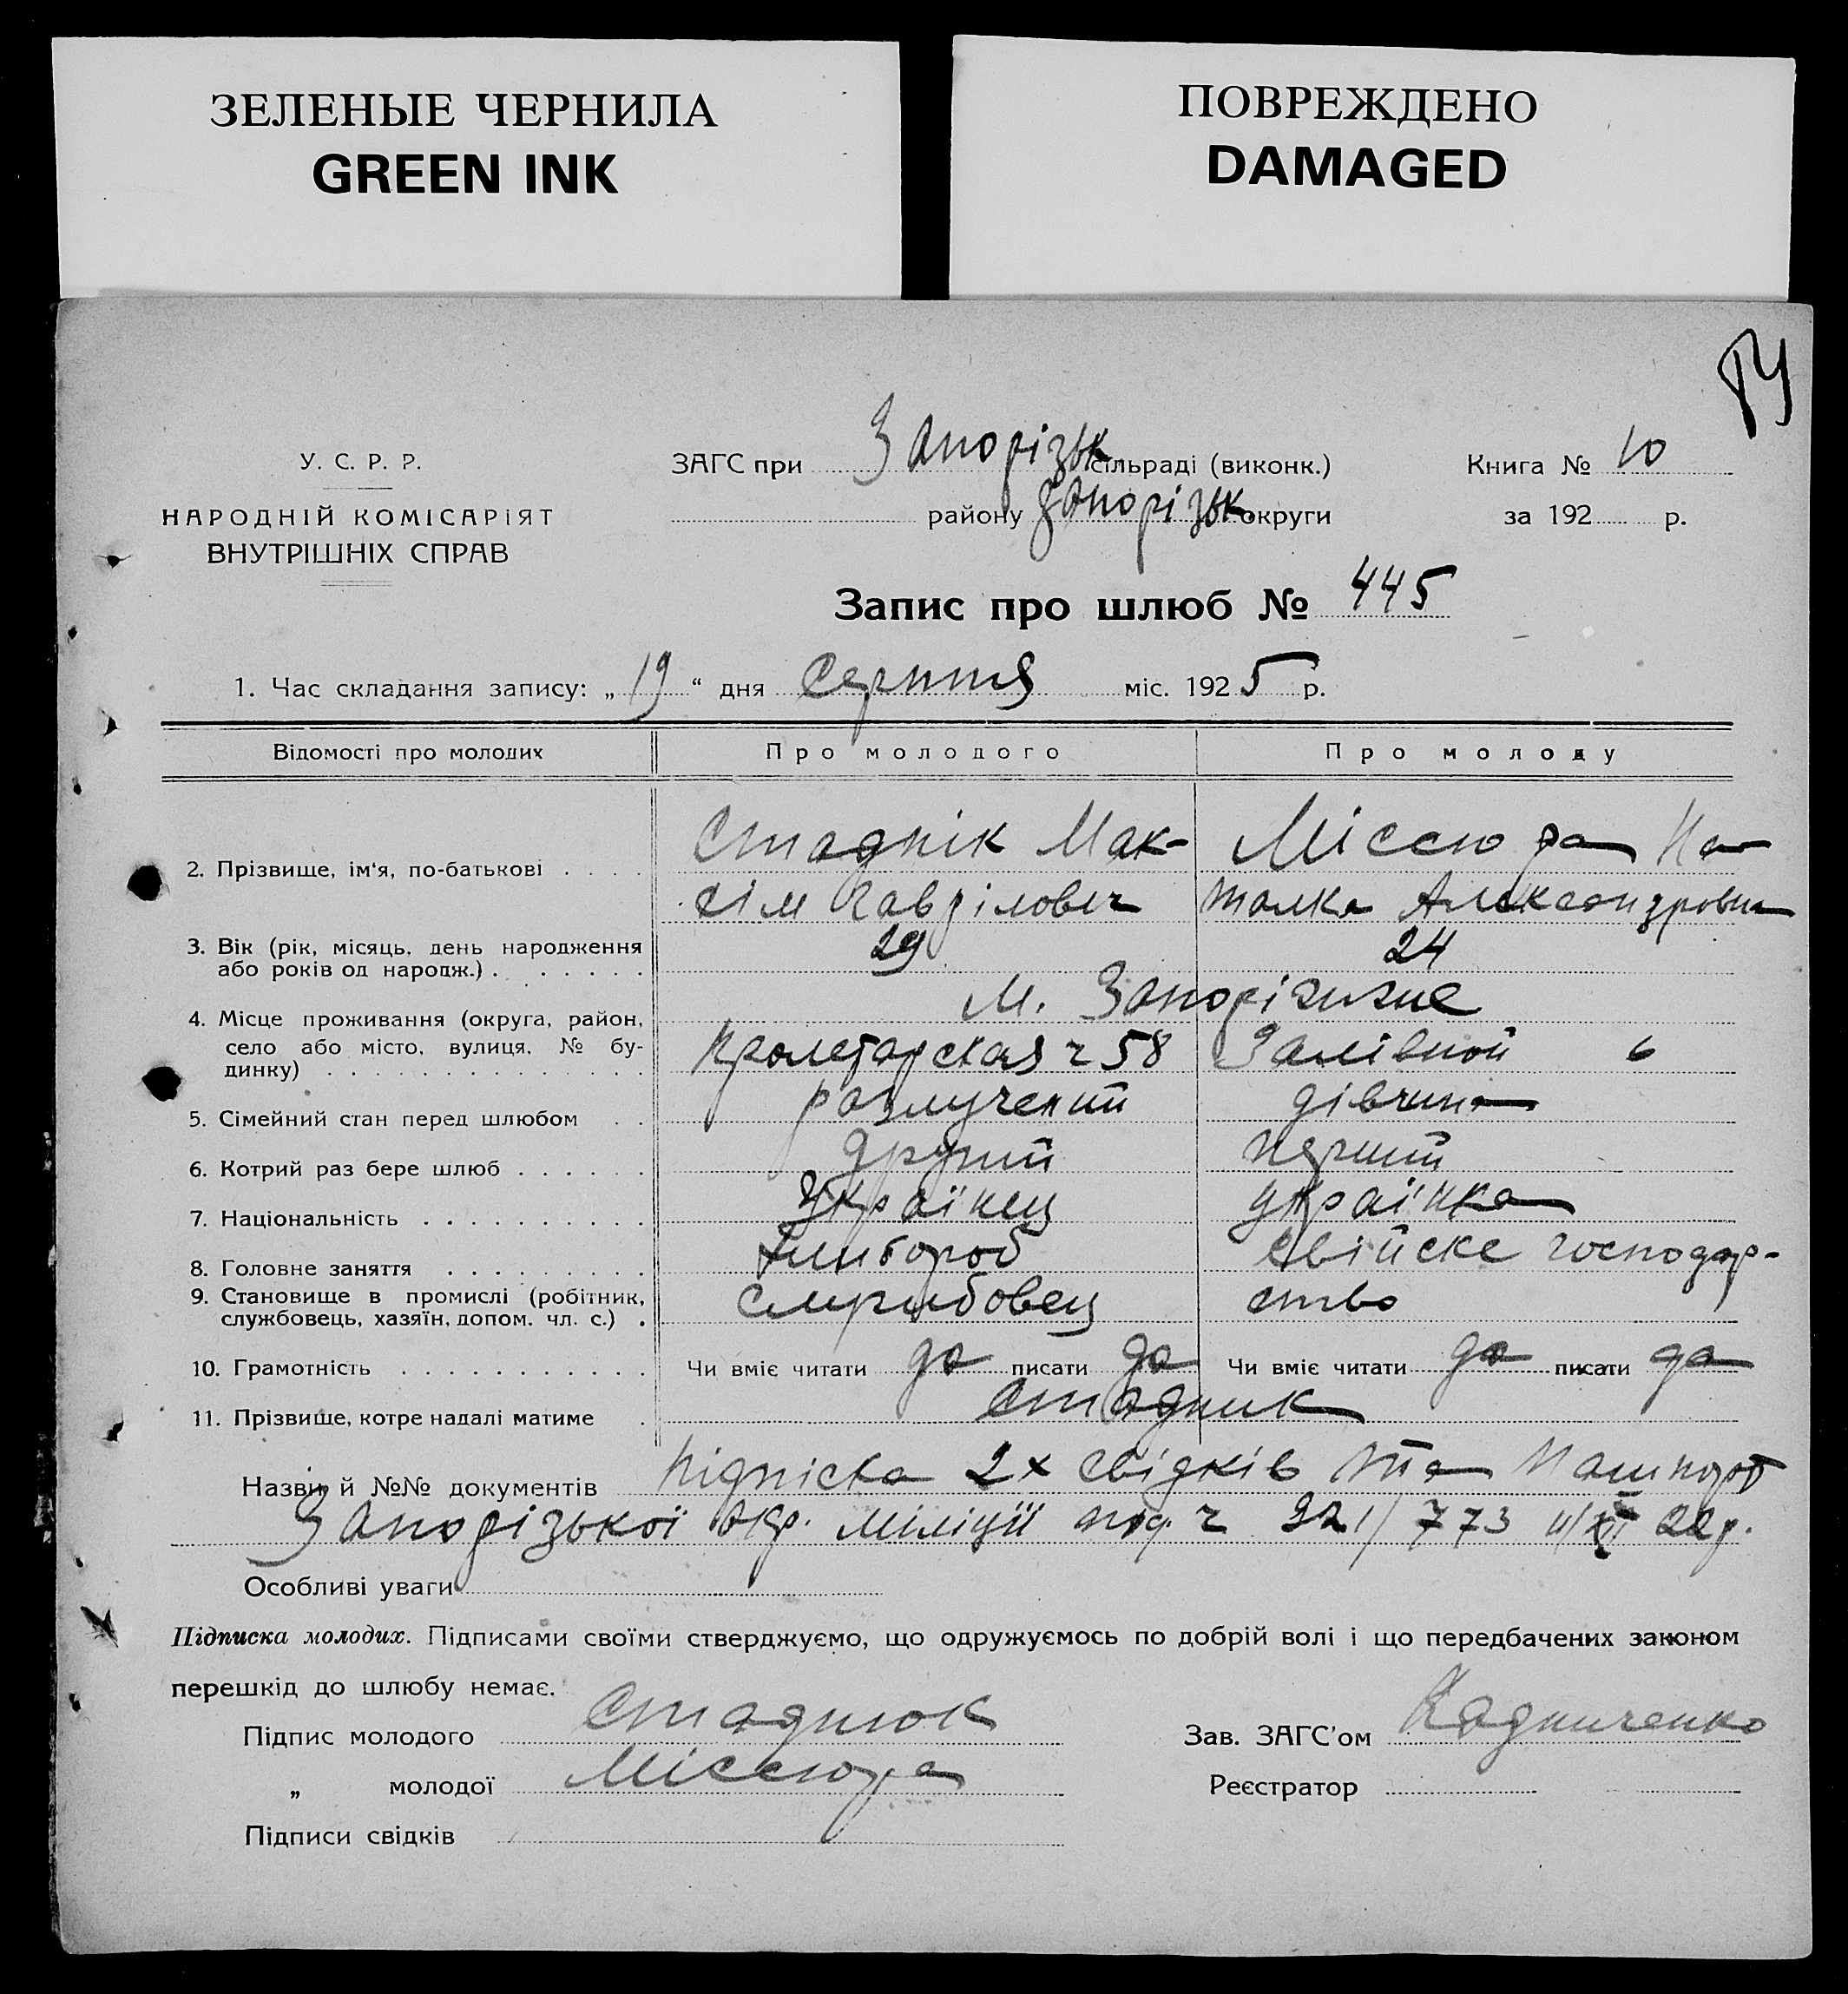 ЗЕЛЕНЫЕ ЧЕРНИЛА
GREEN INK
ПОВРЕЖДЕНО
DAMAGED
У. С. Р. Р.
НАРОДНІЙ КОМІСАРІЯТ
ВНУТРІШНІХ СПРАВ
ЗАГС при Запорізьк сільраді (виконк.)
району Запорізьк округи
Книга № 10
за 192 р.
Запис про шлюб № 445
1. Час складання запису: „19“ дня Серпня міс. 1925 р.
Відомості про молодих Про молодого Про молоду
2. Прізвище, ім'я, по-батькові . . . . Стаднік Мак- Міссюра На-
сім Гаврілович талка Александровна
3. Вік (рік, місяць, день народження 29 24
або років од народж.) . . . . . .
м. Запоріжже
4. Місце проживання (округа, район,
село або місто, вулиця, № бу- Пролетарская ч 58 Залівной 6
динку) . . . . . . . . . . . . . .
5. Сімейний стан перед шлюбом . . разлучений дівчина
6. Котрий раз бере шлюб . . . . . . другий перший
7. Національність . . . . . . . . . . Українец українка
8. Головне заняття . . . . . . . . . свійске господар-
9. Становище в промислі (робітник, ство
службовець, хазяїн, допом. чл. с.) .
10. Грамотність . . . . . . . . . . . Чи вміє читати да писати да Чи вміє читати да писати да
11. Прізвище, котре надалі матиме . Стадник
Назви й №№ документів Підпіска 2х свідків та Пашпорт
Запорізької Окр. міліції под. ч 221/773 11/XI 22р.
Особливі уваги
Підписка молодих. Підписами своїми стверджуємо, що одружуємось по добрій волі і що передбачених законом
перешкід до шлюбу немає.
Підпис молодого Стаднюк
„ молодої Міссюра
Підписи свідків
Зав. ЗАГС'ом
Реєстратор